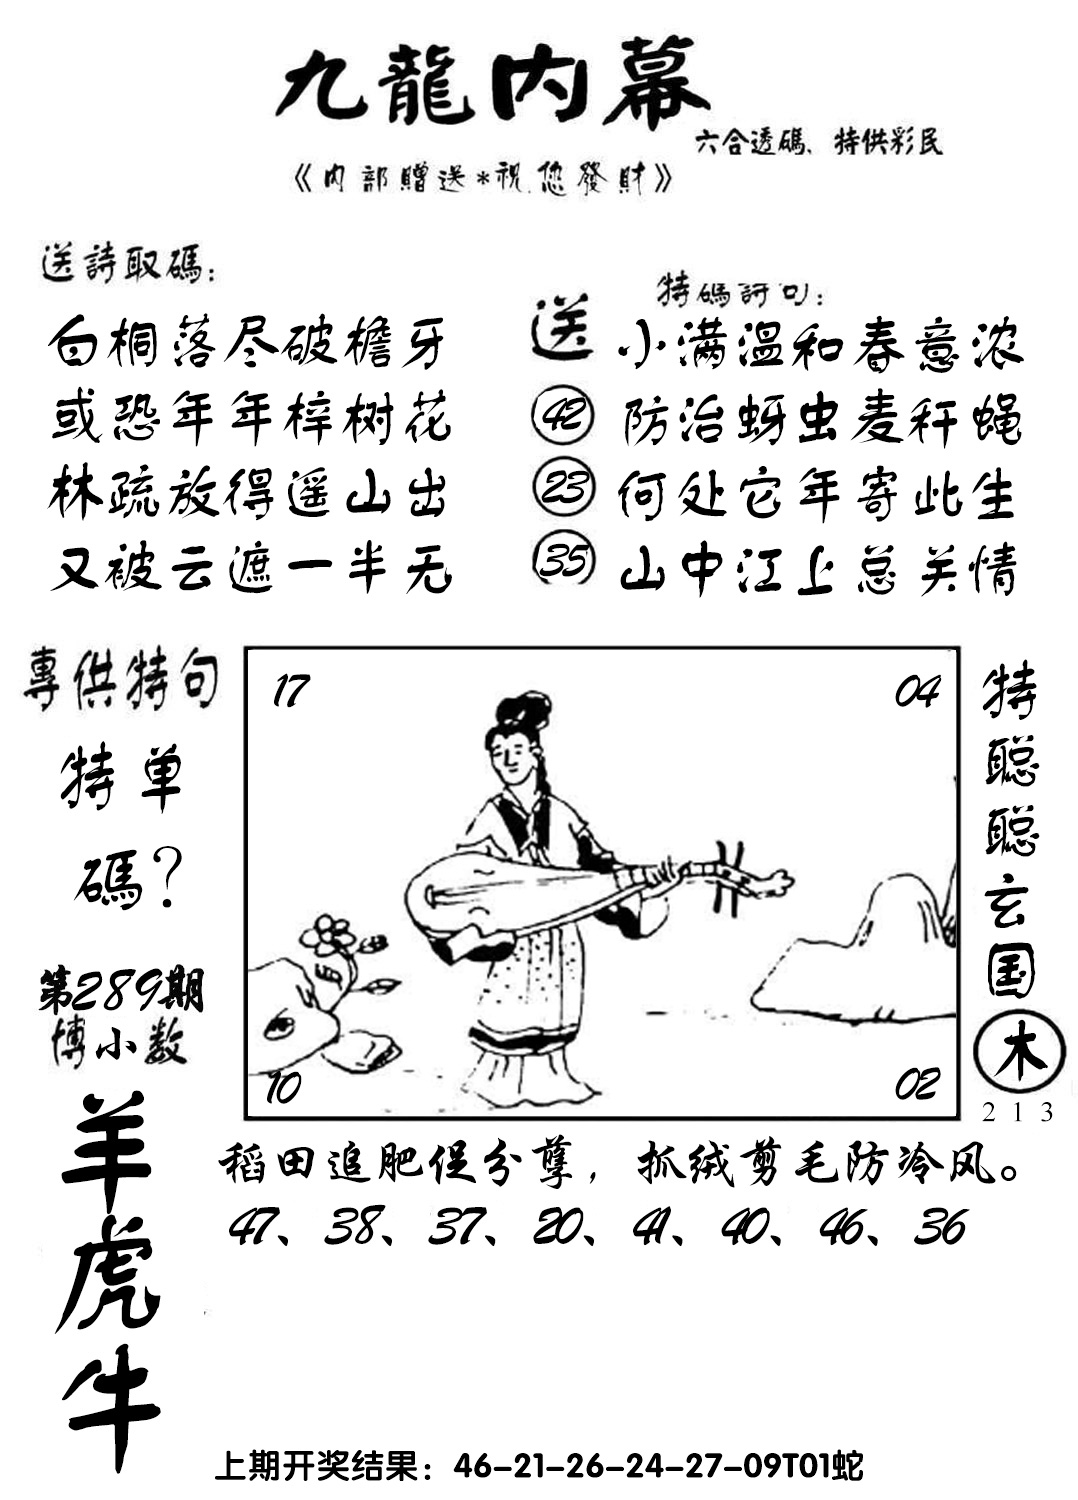 九龍内幕
六合透碼、特供彩民
《内部贈送*祝您發財》
送詩取碼：
白桐落尽破檐牙
或恐年年梓树花
林疏放得遥山出
又被云遮一半无
特碼詩句：
送
42
23
35
小满温和春意浓
防治蚜虫麦秆蝇
何处它年寄此生
山中江上总关情
專供特句
特单
碼？
第289期
博小数
羊
虎
牛
17
04
10
02
特聪聪玄国
木
213
稻田追肥促分孽，抓绒剪毛防冷风。
47、38、37、20、41、40、46、36
上期开奖结果：46-21-26-24-27-09T01蛇